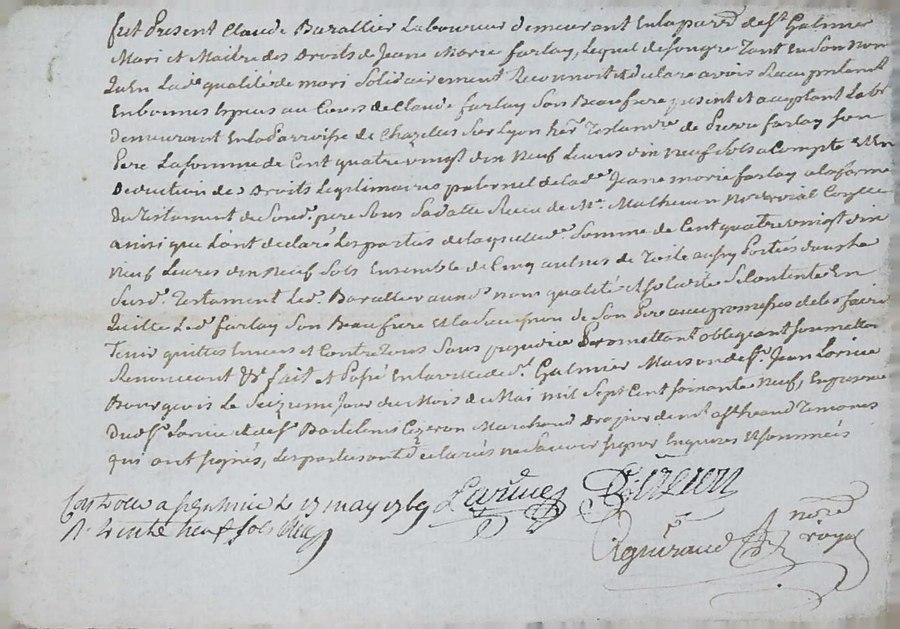 fut Present Claude Barallier Laboureur demeurant En la parr^e de St Galmier
Mari et Maitre des Droits de Jeane Marie farlay, Lequel de son gré Tant En son nom
qu'En Lad^e qualité de mari Solidairement Reconnoit et déclare avoir Receu présentem^t
En bonnes Espèces au Cours de Claude farlay Son Beaufrere présent et acceptant Lab^r
demeurant En la Parroisse de Chazelles Sur Lyon her^r Testam^re de Pierre farlay son
Pere La somme de Cent quatre vingt dix Neuf Livres dix neuf Sols a Compte et En
Deduction des Droits Legitimaires paternel de lad^e Jeane marie farlay a la forme
du Testament du Sond^t pere Sous Sa datte Receu de M^e Mathevon No^re roial
ainsi que L'ont declaré Les parties de laquelle d^e Somme de Cent quatre vingt dix
Neuf Livres dix Neuf Sols Ensemble de Cinq aulnes de Toile aussy Portées dans Le
Susd^t Testament Led^t Barallier aux d^s nom qualité et Solidité Se Contente En
Quitte Led^t farlay Son Beaufrere Et la Succession de Son Pere avec promesses de les faire
Tenir quittes Envers et Contre Tous Sans prejudice Promettant obligeant soumettant
Renonceant &^a fait et Passé En la ville de St Galmier Maison de S^r Jean
Bourgeois Le Seizieme Jour du Mois de Mai mil Sept Cent soixante Neuf, En presence
Dud^t S^r et de S^r Bartelemi Marchand Drapier dud^t St Temoins
qui ont signés, Les parties ont declarés ne Sçavoir Signer Enquises et Sommées
Controllé a St Galmier Le 17 may 1769
R^u trente neuf Sols
Pignuraud No^re royal